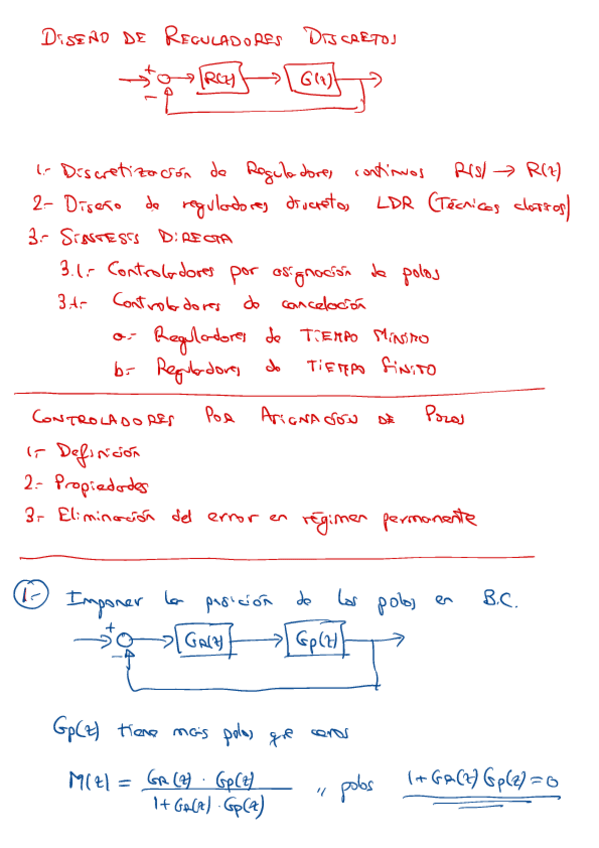 DISEÑO DE REGULADORES DISCRETOS
+ R(z) G(z)
-
1.- Discretización de Reguladores continuos R(s) → R(z)
2.- Diseño de reguladores discretos LDR (Técnicas clásicas)
3.- SÍNTESIS DIRECTA
3.1.- Controladores por asignación de polos
3.2.- Controladores de cancelación
a.- Reguladores de TIEMPO MÍNIMO
b.- Reguladores de TIEMPO FINITO
CONTROLADORES POR ASIGNACIÓN DE POLOS
1.- Definición
2.- Propiedades
3.- Eliminación del error en régimen permanente
1.- Imponer la posición de los polos en B.C.
+ GR(z) Gp(z)
-
Gp(z) tiene más polos que ceros
M(z) = GR(z) · Gp(z) / 1+GR(z)·Gp(z) ,, polos 1+GR(z)Gp(z)=0